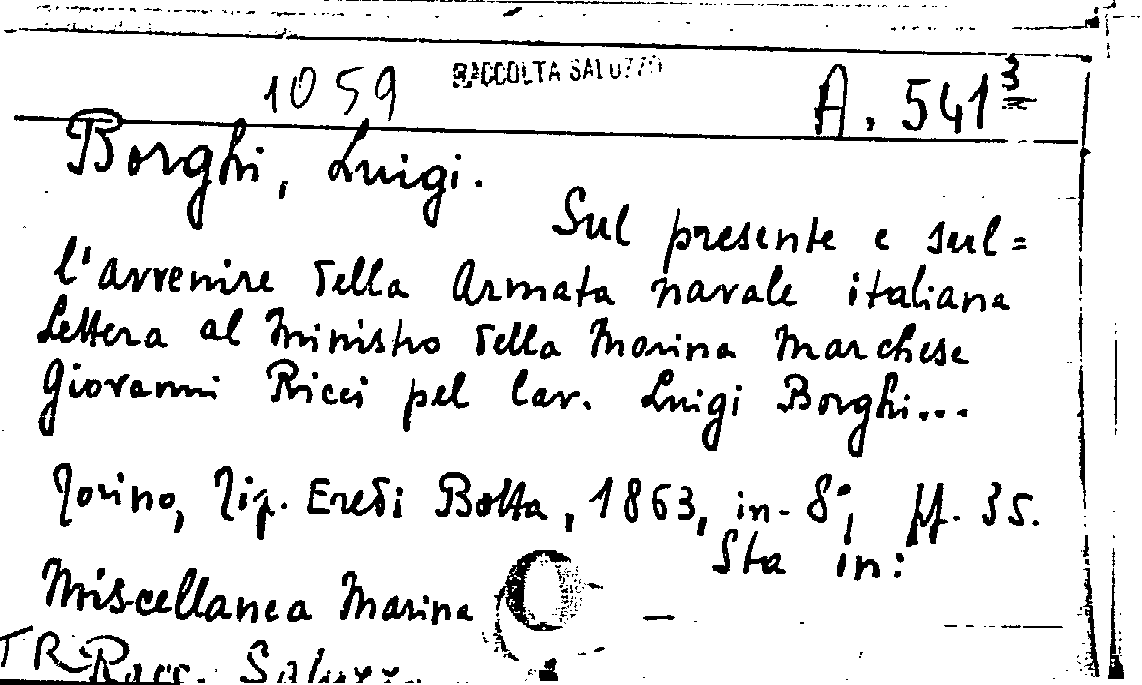 1059 RACCOLTA SALUZZO A. 541³
Borghi, Luigi.
Sul presente e sul=
l'avvenire della Armata navale italiana
Lettera al Ministro della Marina Marchese
Giovanni Ricci pel Cav. Luigi Borghi...
Torino, Tip. Eredi Botta, 1863, in-8°, pp. 35.
Sta in:
Miscellanea Marina
TR Racc. Saluzzo